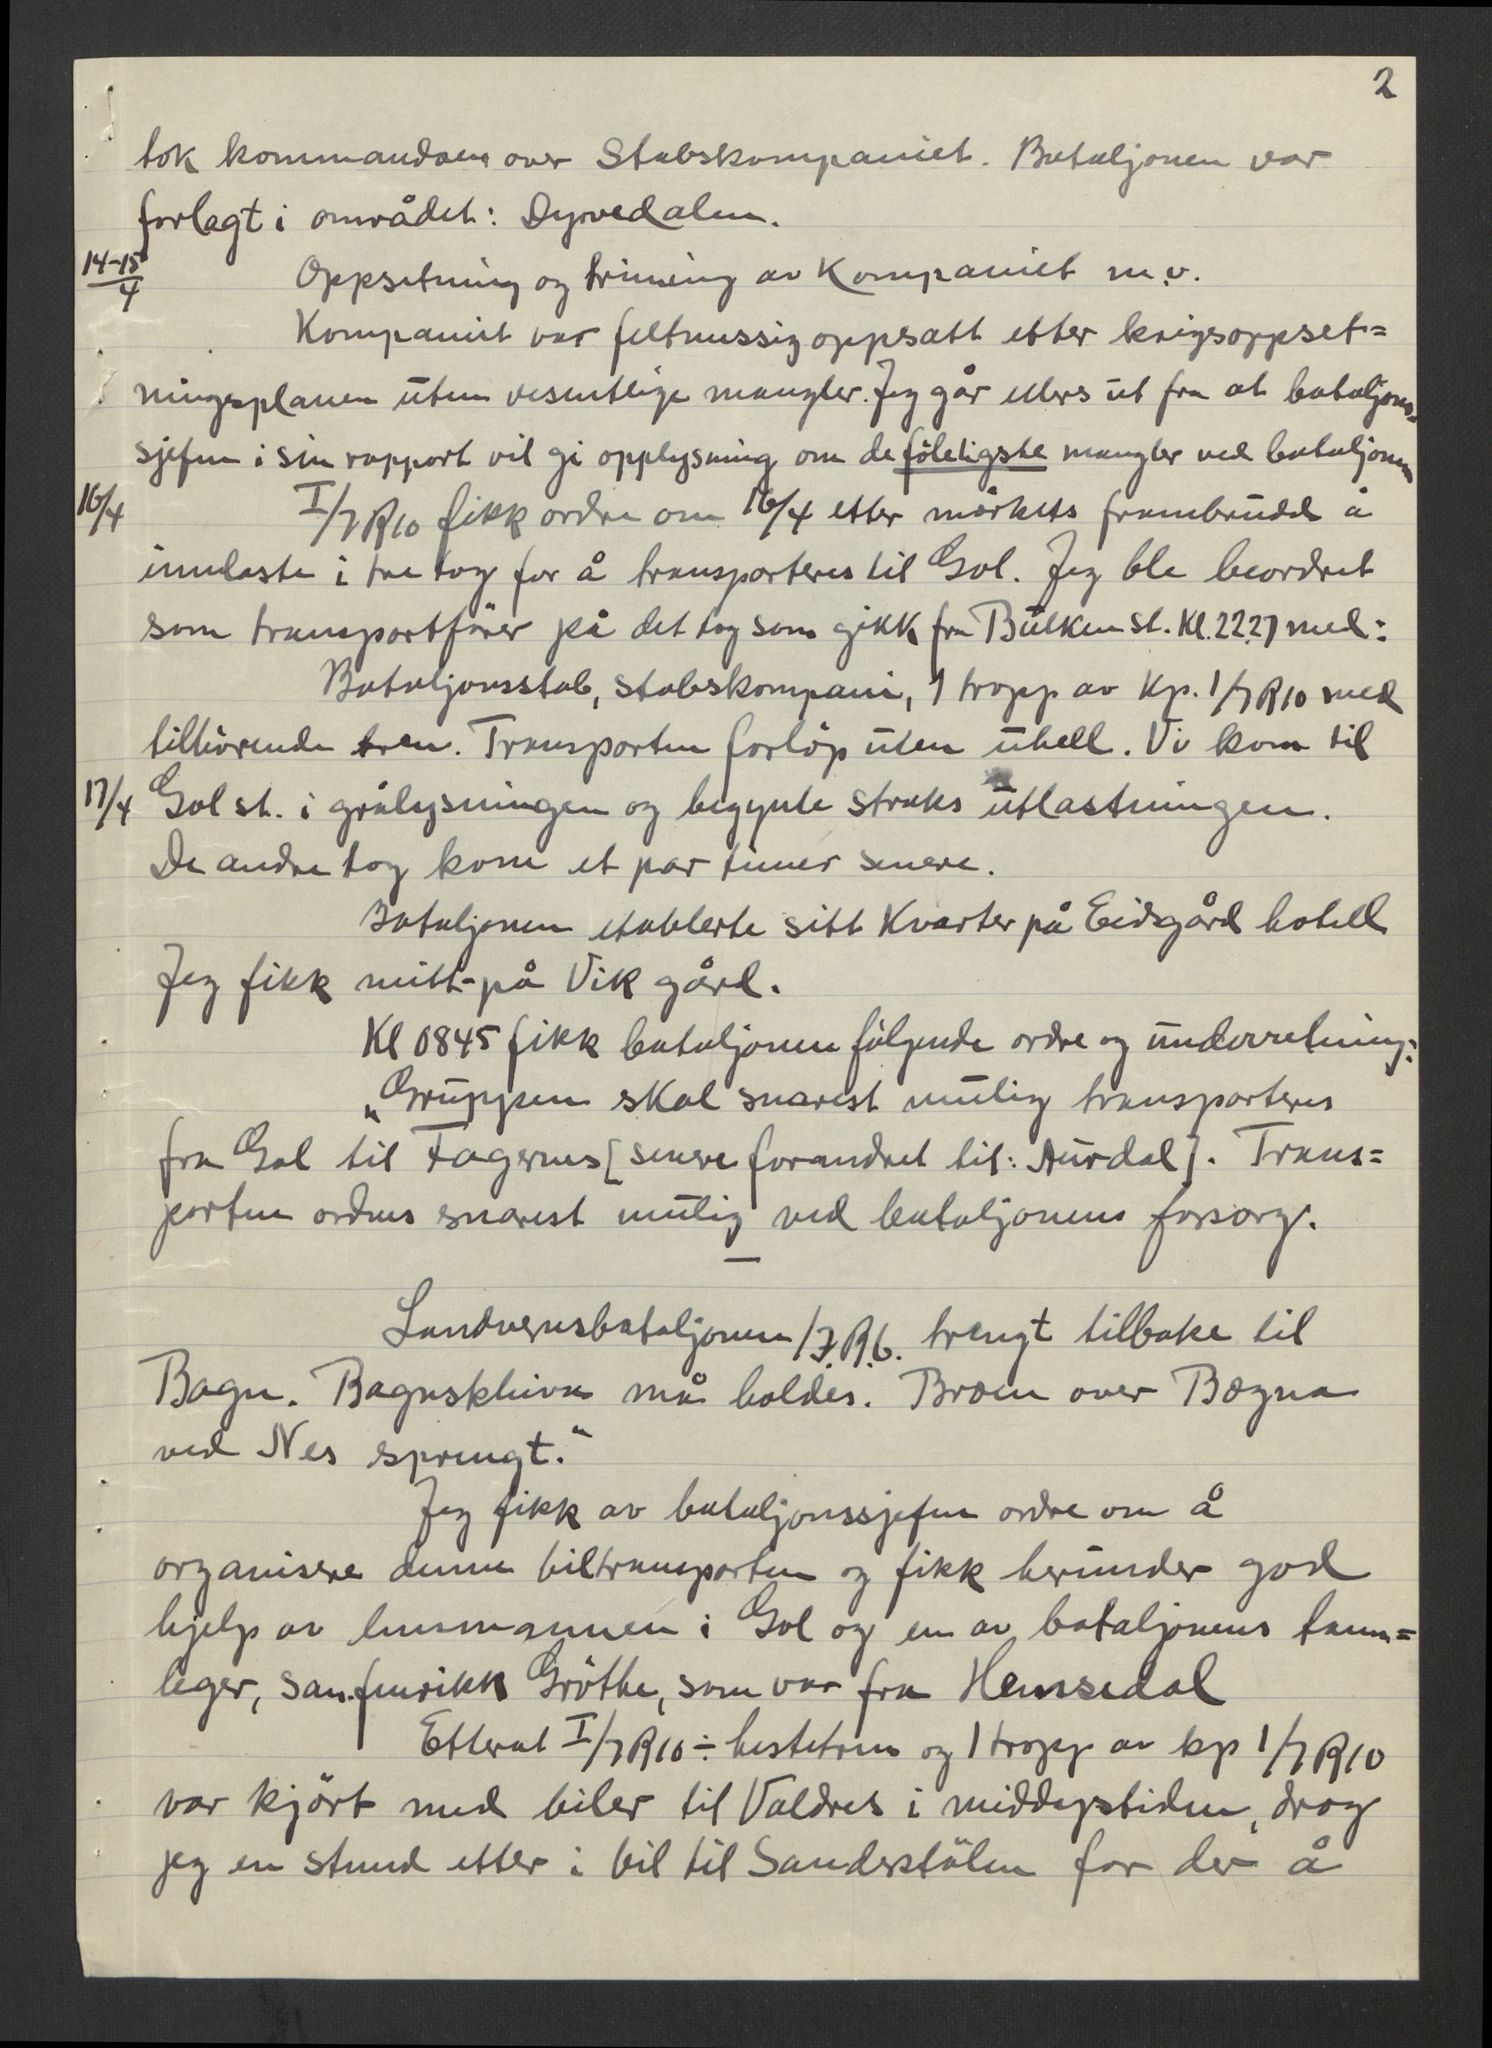 2
tok kommandoen over Stabskompaniet. Bataljonen var
forlagt i området: Dyrvedalen.
14-15/4 Oppsetning og trimming av Kompaniet m.v.
Kompaniet var feltmessig oppsatt etter krigsoppset=
ningsplanen uten vesentlige mangler. Jeg går ellers ut fra at bataljons=
sjefen i sin rapport vil gi opplysning om de föleligste mangler ved bataljonen
16/4 I/IR10 fikk ordre om 16/4 etter mörkets frambrudd å
innlaste i tre tog for å transporteres til Gol. Jeg ble beordret
som transportförer på det tog som gikk fra Bulken st. Kl. 2227 med:
Bataljonsstab, stabskompani, 1 tropp av Kp. 1/IR10 med
tilhörende tren. Transporten forlöp uten uhell. Vi kom til
17/4 Gol st. i grålysningen og begynte straks utlastningen.
De andre tog kom et par timer senere.
Bataljonen etablerte sitt Kvarter på Eidsgård hotell
Jeg fikk mitt på Vik gård.
Kl 0845 fikk bataljonen fölgende ordre og underretning:
„Gruppen skal snarest mulig transporteres
fra Gol til Fagernes [senere forandret til: Aurdal]. Trans=
porten ordnes snarest mulig ved bataljonens forsorg.
—
Landvernsbataljonen/I.R.6. trengt tilbake til
Bagn. Bagnskliva må holdes. Broen over Bægna
ved Nes sprengt."
Jeg fikk av bataljonssjefen ordre om å
organisere denne biltransporten og fikk herunder god
hjelp av lensmannen i Gol og en av bataljonens tann=
leger, san.fenrikk Gröthe, som var fra Hemsedal
Etterat I/IR10 ÷ hestetren og 1 tropp av kp 1/IR10
var kjört med biler til Valdres i middagstiden, drog
jeg en stund etter i bil til Sanderstölen for der å